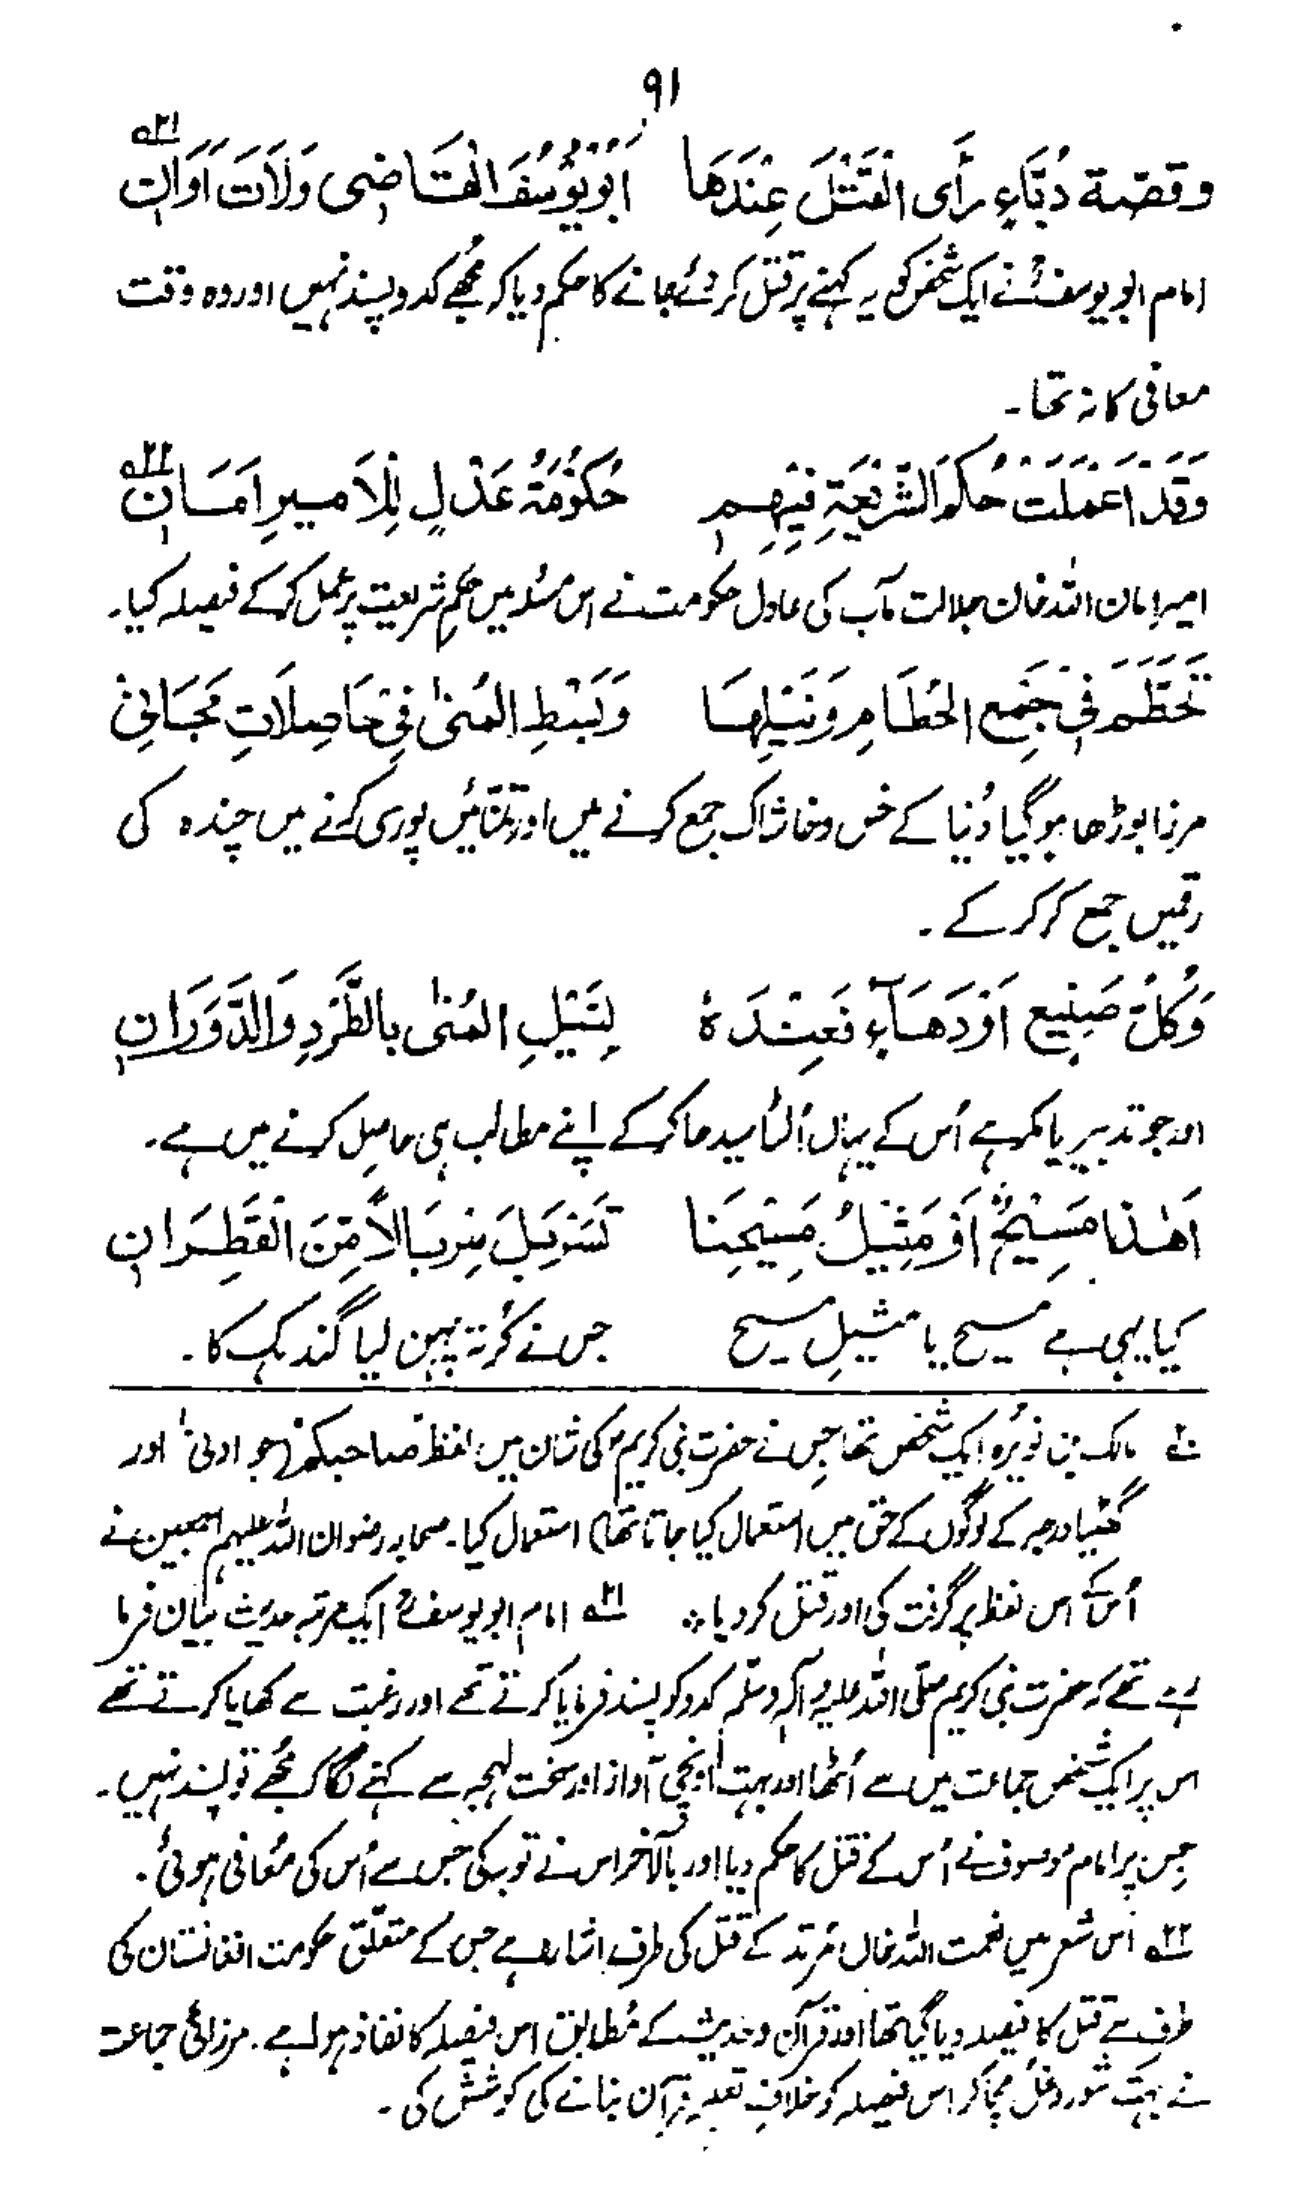 ۹۱
وقصة دُبَّاءٍ رأَى الْقَتْلَ عِنْدَهَا اَبُوْيُوْسُفَ الْقَاضِی وَلَاتَ اَوَانِ ۲۱ـه
امام ابو یوسفؒ نے ایک شخص کو یہ کہنے پر قتل کردئے جانے کا حکم دیا کہ مجھے کدو پسند نہیں اور وہ وقت
معافی کا نہ تھا۔
وَقَدْ اَعْمَلَتْ حُكْمَ الشَّرِيْعَةِ فِيْهِمِ حُكُوْمَةُ عَدْلٍ لِلْاَمِيرِ اَمَانِ ۲۲ـه
امیر امان اللہ خان جلالت مآب کی عادل حکومت نے اس مسئلہ میں حکمِ شریعت پر عمل کرکے فیصلہ کیا۔
تَحَطَّمَ فِیْ جَمْعِ الْحُطَامِ وَنَيْلِهَا وَبَسْطِ الْمُنٰی فِیْ حَاصِلَاتِ مَجَانِیْ
مرزا بوڑھا ہوگیا دُنیا کے خس وخاشاک جمع کرنے میں اور تمنّائیں پوری کرنے میں چندہ کی
رقمیں جمع کر کر کے۔
وَكُلُّ صَنِيْعٍ اَوْدَهَآءٍ فَعِنْدَهٗ لِنَيْلِ الْمُنٰی بِالطَّرْدِ وَالدَّوَرَانِ
اور جو تدبیر یا مکر ہے اُس کے یہاں اُلٹا سیدھا کرکے اپنے مطالب ہی حاصل کرنے میں ہے۔
اَهٰذَا مَسِيْحٌ اَوْ مَثِيْلُ مَسِيْحِنَا تَسَرْبَلَ سِرْبَالًا مِّنَ الْقَطِرَانِ
کیا یہی ہے مسیح یا مثیلِ مسیح جس نے کُرتہ پہن لیا گندہک کا۔
۲۰ـه مالک بن نُویرہ ایک شخص تھا جس نے حضرت نبی کریمؐ کی شان میں لفظ صاحبکم (جو ادنیٰ اور
گھٹیا درجہ کے لوگوں کے حق میں استعمال کیا جاتا تھا) استعمال کیا۔ صحابہ رضوان اللہ علیہم اجمعین نے
اُس کے اس لفظ پر گرفت کی اور قتل کردیا ۲۱ـه امام ابو یوسفؒ ایک مرتبہ حدیث بیان فرما
رہے تھے کہ حضرت نبی کریم صلی اللہ علیہ وآلہ وسلّم کدو کو پسند فرمایا کرتے تھے اور رغبت سے کھایا کرتے تھے
اس پر ایک شخص جماعت میں سے اُٹھا اور بہت اونچی آواز اور سخت لہجہ سے کہنے لگا کہ مجھے تو پسند نہیں۔
جس پر امام موصوف نے اُس کے قتل کا حکم دیا اور بالآخر اس نے توبہ کی جس سے اُس کی مُعافی ہوئی۔
۲۲ـه اس شعر میں نعمت اللہ خاں مُرتد کے قتل کی طرف اشارہ ہے جس کے متعلّق حکومت افغانستان کی
طرف سے قتل کا فیصلہ دیا گیا تھا اور قرآن و حدیث کے مُطابق اس فیصلہ کا نفاذ ہوا ہے۔ مرزائی جماعت
نے بہت شور وغُل مچا کر اس فیصلہ کو خلافِ تعلیم قرآن بنانے کی کوشش کی۔